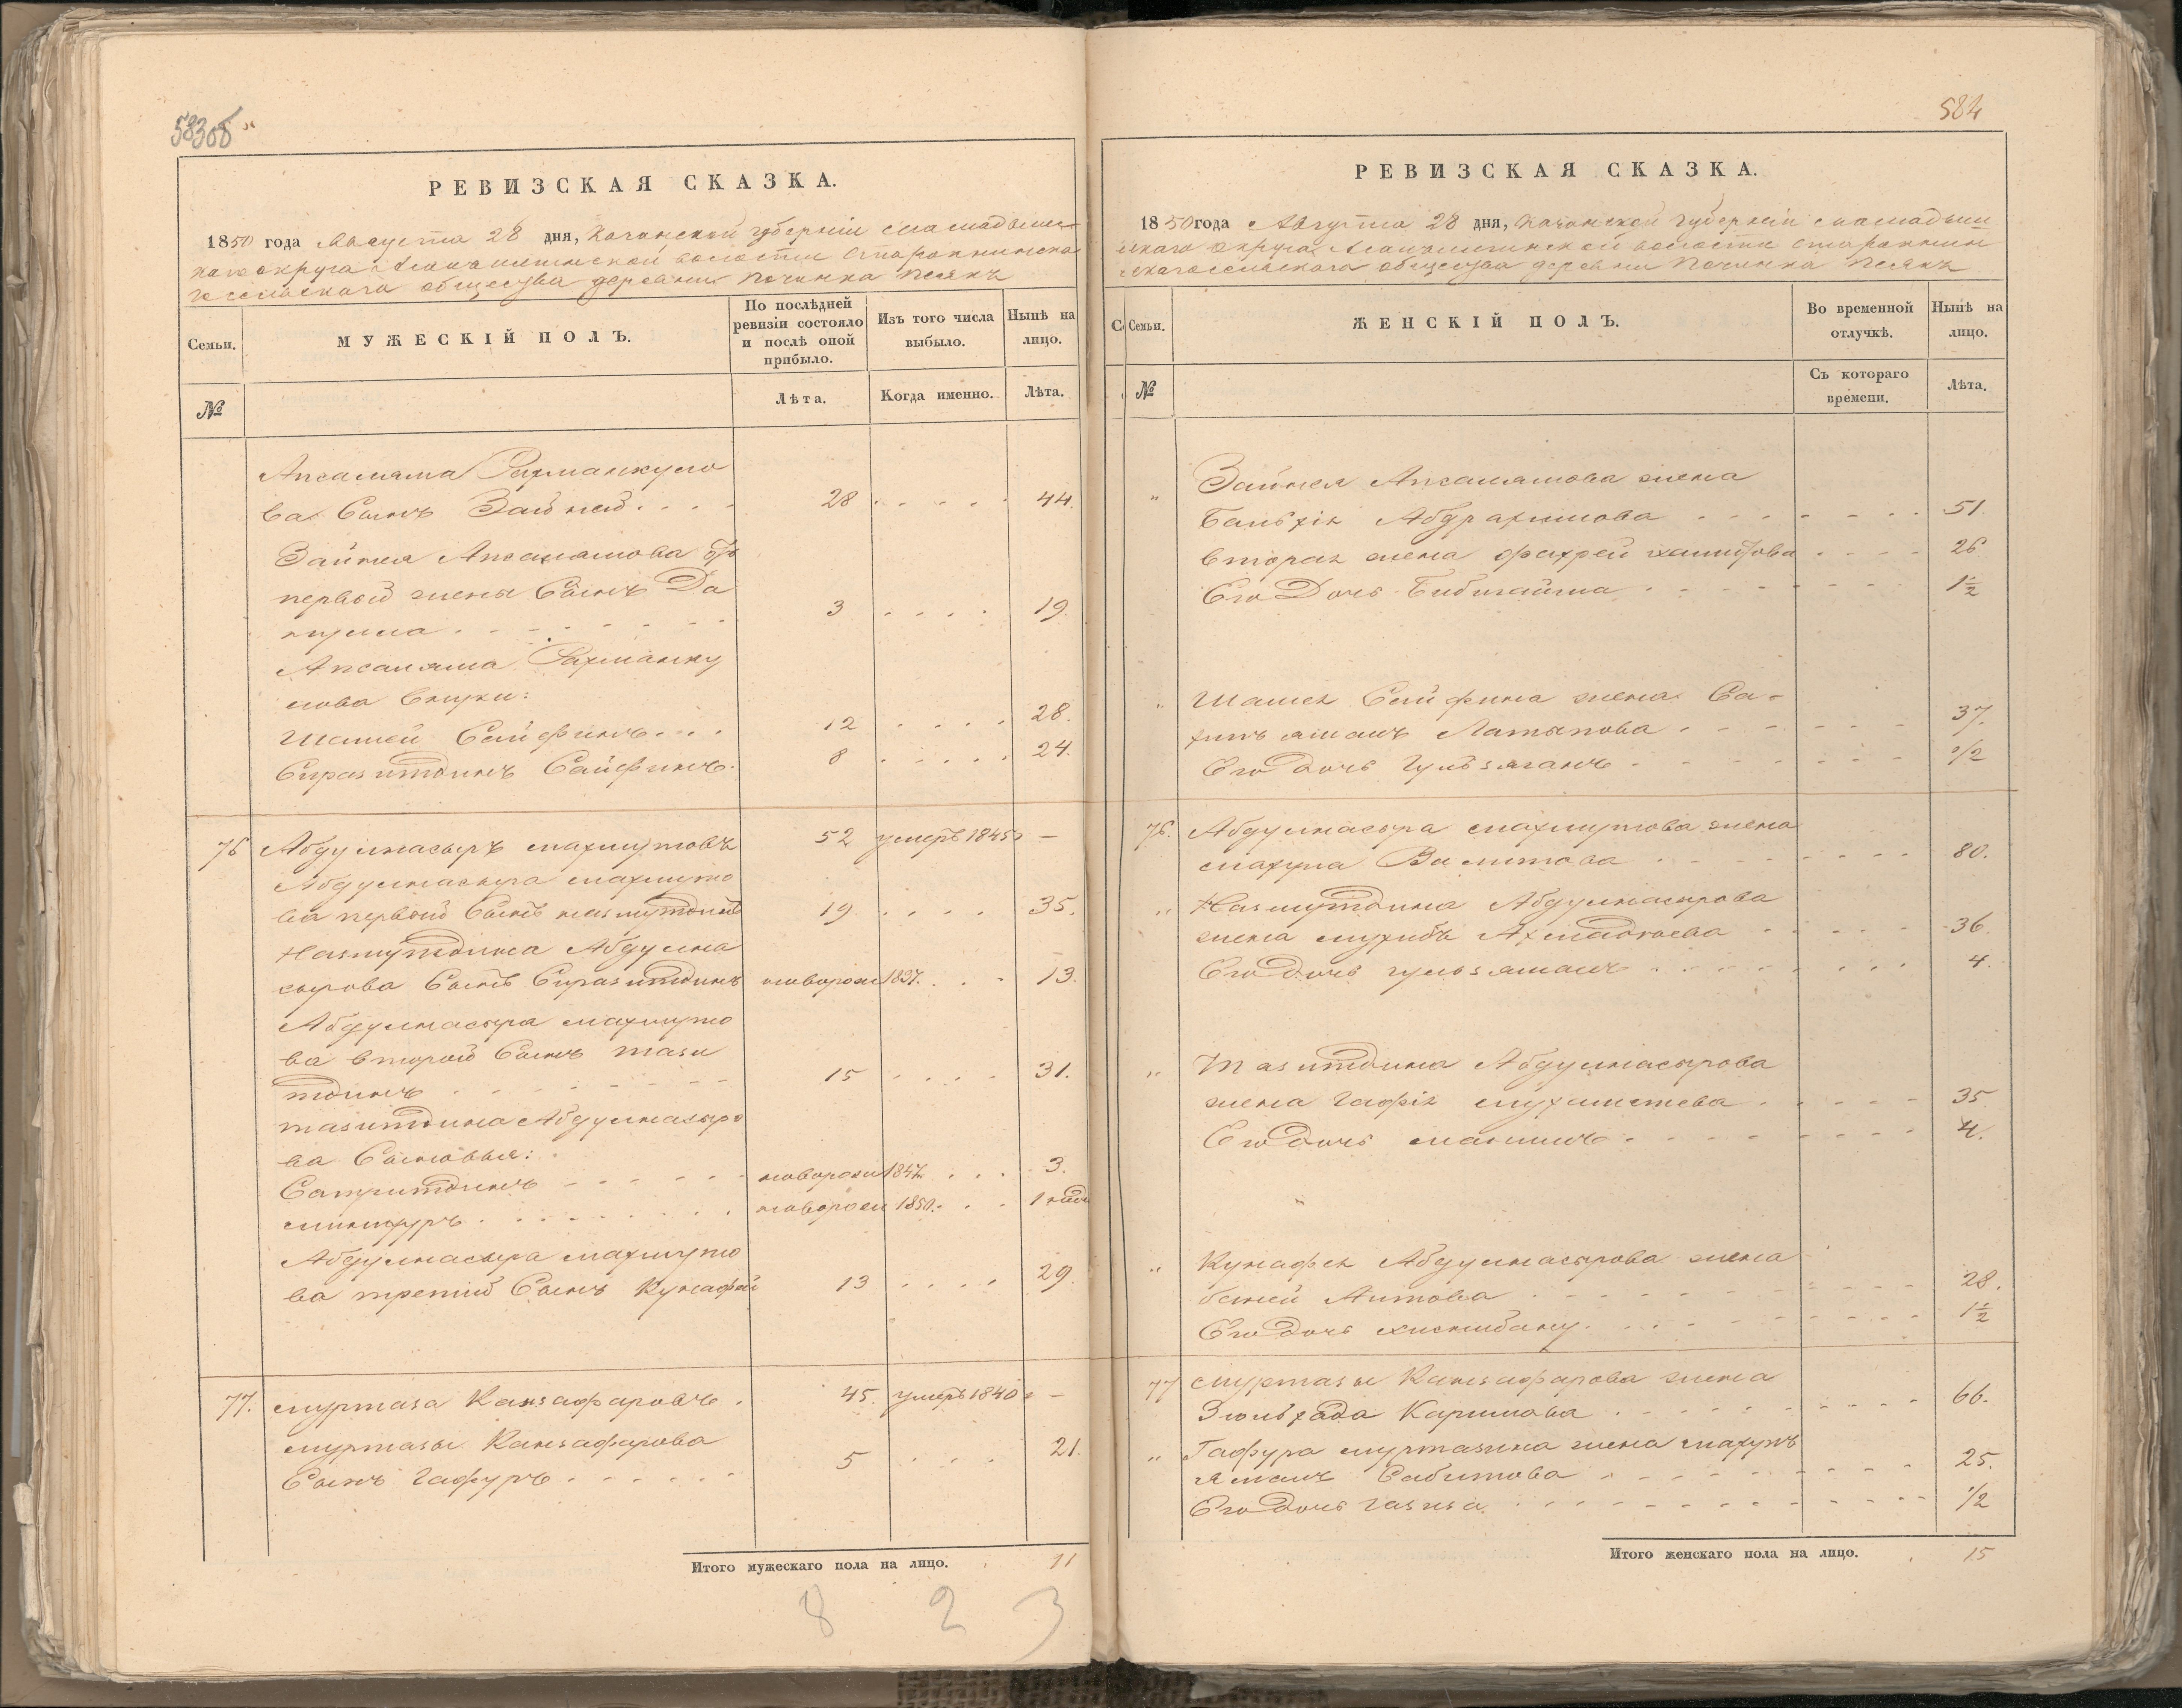 583об
РЕВИЗСКАЯ СКАЗКА.
1850 года Августа 28 дня, Казанской губерніи Мамадыш-
скаго округа волости Старокнинска
го сельскаго общества деревни Починка Пслякъ
Семьи.
МУЖЕСКІЙ ПОЛЪ.
По послѣдней
ревизіи состояло
и послѣ оной
прибыло.
Изъ того числа
выбыло.
Нынѣ на
лицо.
№
Лѣта.
Когда именно.
Лѣта.
Апсаляма Рахманкуло
ва Сынъ Зайней . . . . 28 . . . . . 44.
Зайнея Апсалямова отъ
первой жены Сынъ Да
. . . . . . . 3 . . . . 19.
Апсаляма Рахманку
лова внуки:
Шамей Сейфинъ . . . 12 . . . . 28.
Сиразитдинъ Сайфинъ. 8 . . . . . 24.
76 Абдулнасыръ Махмутовъ 52 умеръ 1845 —
Абдулнасыра Махмуто
ва первой Сынъ Назмутдинъ 19. . . . . 35.
Назмутдина Абдулна
сырова Сынъ Сиразитдинъ новорож 1837. . . . 13.
Абдулнасыра Махмуто
ва второй Сынъ Тази
тдинъ . . . . . . . . 15 . . . . 31.
Тазитдина Абдулнасыро
ва Сыновья:
Сатритдинъ . . . . . . новорож 1847. . . . 3.
. . . . . . . . новорож 1850. . . 1 неде
Абдулнасыра Махмуто
ва третій Сынъ Кунафей 13 . . . . 29.
77. Муртаза Канзафаровъ . 45. умеръ 1840 г —
Муртазы Канзафарова
Сынъ Гафуръ . . . . . . 5 . . . 21.
Итого мужескаго пола на лицо. 11
8 2 3
584
РЕВИЗСКАЯ СКАЗКА.
1850 года Августа 28 дня, Казанской губерніи Мамадыш
скаго округа волости Старокнин
скаго сельскаго общества деревни Починка Пслякъ
С. Семьи.
ЖЕНСКІЙ ПОЛЪ.
Во временной
отлучкѣ.
Нынѣ на
лицо.
№
Съ котораго
времени.
Лѣта.
" Зайнея Апсалямова жена
Абдрахимова . . . . . . . . 51.
вторая жена Фахрей Хамитова . . . . 26
Его Дочь Бибигайша . . . . . . . . 1½
" Шамея Сейфина жена Са-
Латыпова . . . . . . . 37.
Его дочь Гульзяганъ . . . . . . . . ½
76. Абдулнасыра Махмутова жена
Махупа Валитова . . . . . . . . 80.
" Назмутдина Абдулнасырова
жена Мухиба . . . . . 36.
Его дочь Гульзяманъ . . . . . . . . 4.
" Тазитдина Абдулнасырова
жена Гафія . . . . . 35
Его дочь . . . . . . . . 4.
" Кунафея Абдулнасырова жена
Аитова . . . . . . . . . . 28.
Его дочь Хиснибану. . . . . . . . . . 1½
77 Муртазы Канзафарова жена
Каримова . . . . . . . . . 66.
" Гафура Муртазина жена Махуп
ямалъ Сабитова . . . . . . . . . 25.
Его дочь . . . . . . . . . . . . ½
Итого женскаго пола на лицо. 15